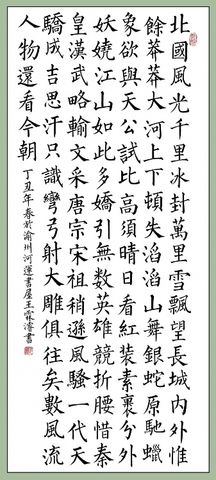 北國風光千里冰封萬里雪飄望長城內外惟
餘莽莽大河上下頓失滔滔山舞銀蛇原馳蠟
象欲與天公試比高須晴日看紅裝素裹分外
妖嬈江山如此多嬌引無數英雄競折腰惜秦
皇漢武略輸文采唐宗宋祖稍遜風騷一代天
驕成吉思汗只識彎弓射大雕俱往矣數風流
人物還看今朝 丁丑年春於渝州河運書屋王霖濤書